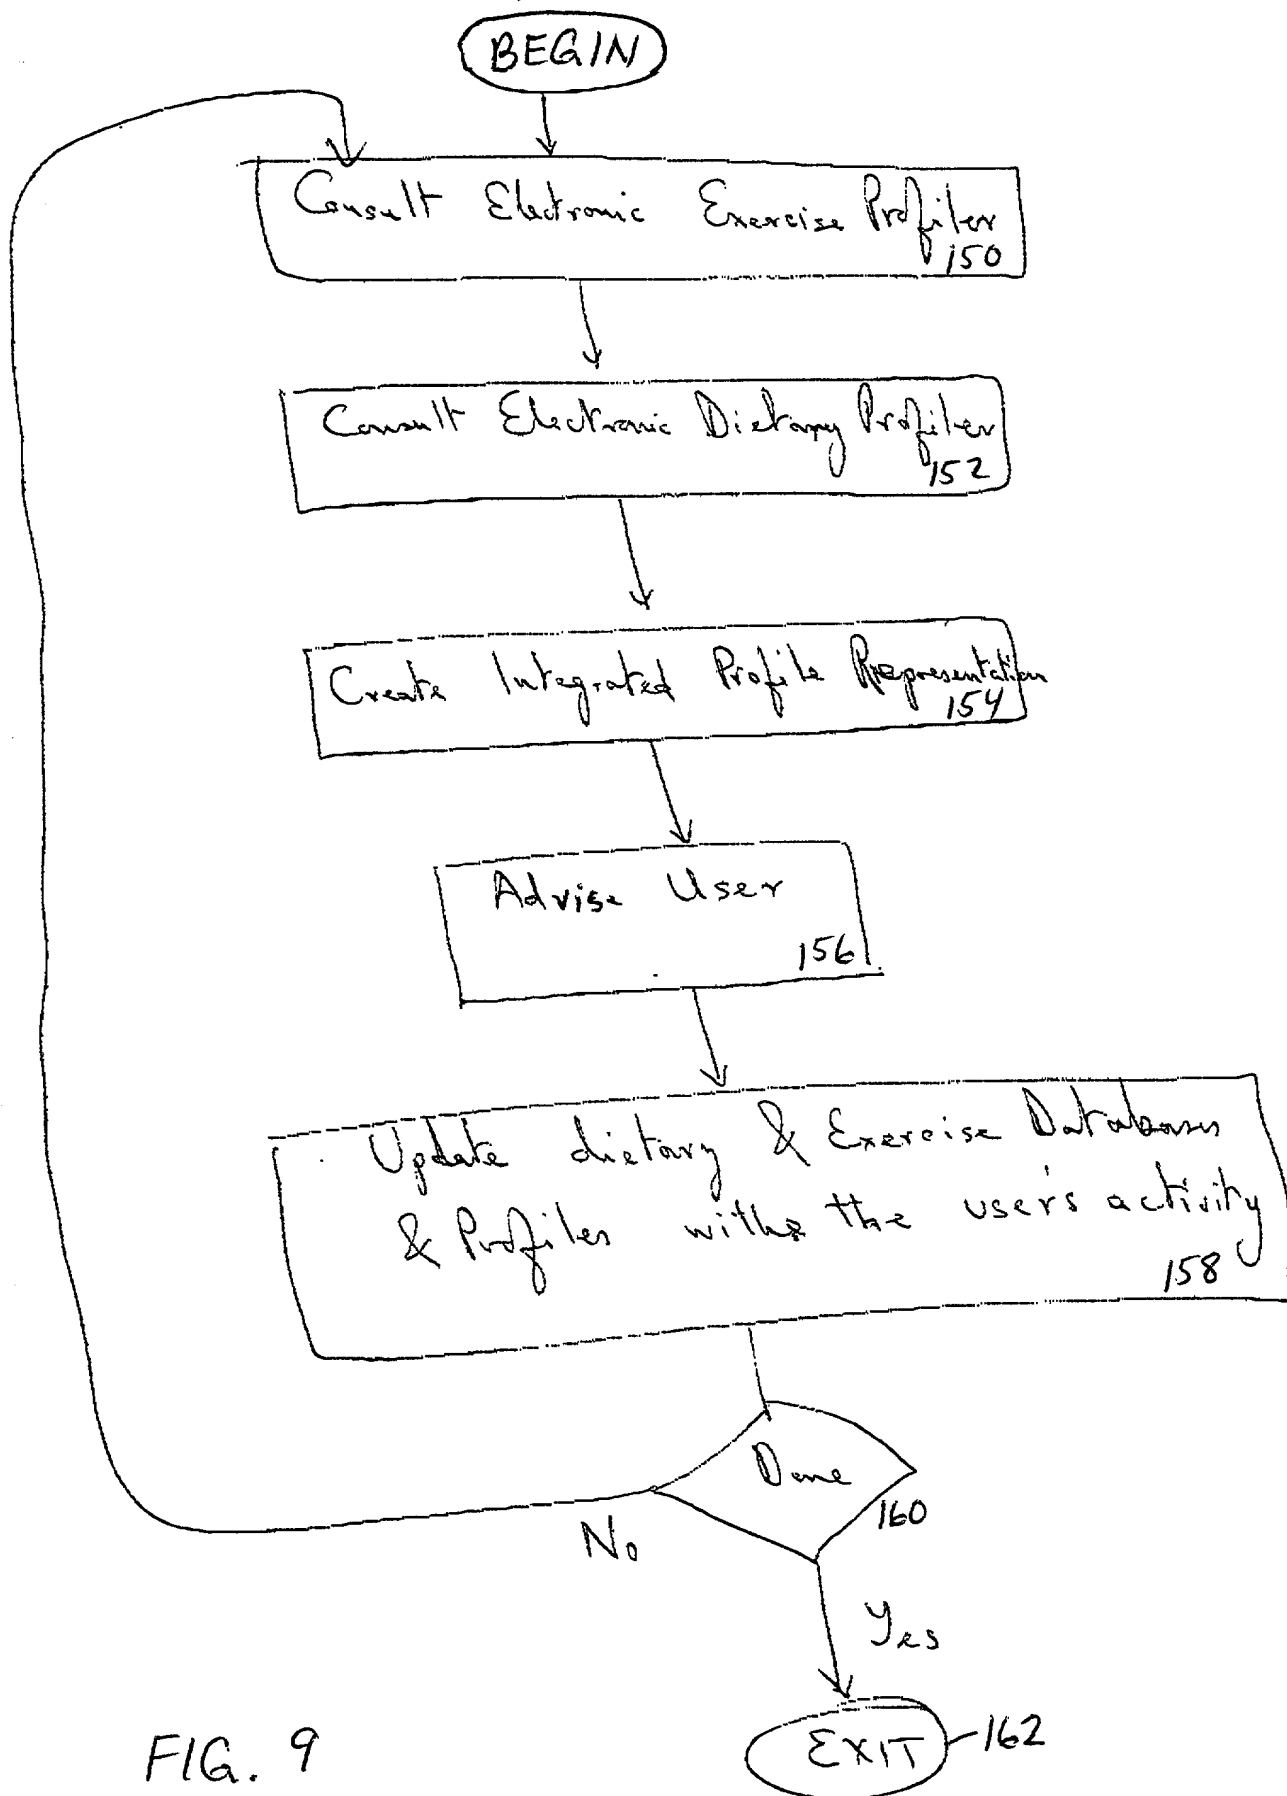 BEGIN
Consult Electronic Exercise Profiler
150
Consult Electronic Dietary Profiler
152
Create Integrated Profile Representation
154
Advise User
156
Update dietary & Exercise Databases
& Profiles with the user's activity
158
Done
160
No
Yes
EXIT 162
FIG. 9